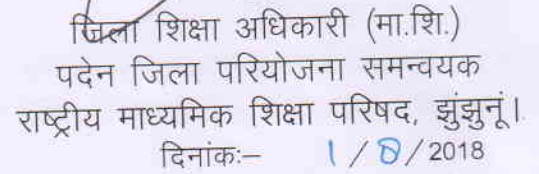 जिला शिक्षा अधिकारी (मा.शि.)
पदेन जिला परियोजना समन्वयक
राष्ट्रीय माध्यमिक शिक्षा परिषद, झुंझुनूं।
दिनांकः– 1/8/2018